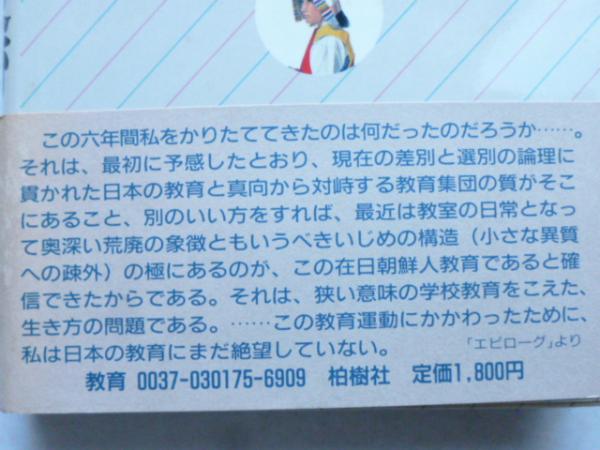 この六年間私をかりたててきたのは何だったのだろうか……。
それは、最初に予感したとおり、現在の差別と選別の論理に
貫かれた日本の教育と真向から対峙する教育集団の質がそこ
にあること、別のいい方をすれば、最近は教室の日常となっ
て奥深い荒廃の象徴ともいうべきいじめの構造（小さな異質
への疎外）の極にあるのが、この在日朝鮮人教育であると確
信できたからである。それは、狭い意味の学校教育をこえた、
生き方の問題である。……この教育運動にかかわったために、
私は日本の教育にまだ絶望していない。
「エピローグ」より
教育 0037-030175-6909 柏樹社 定価1,800円